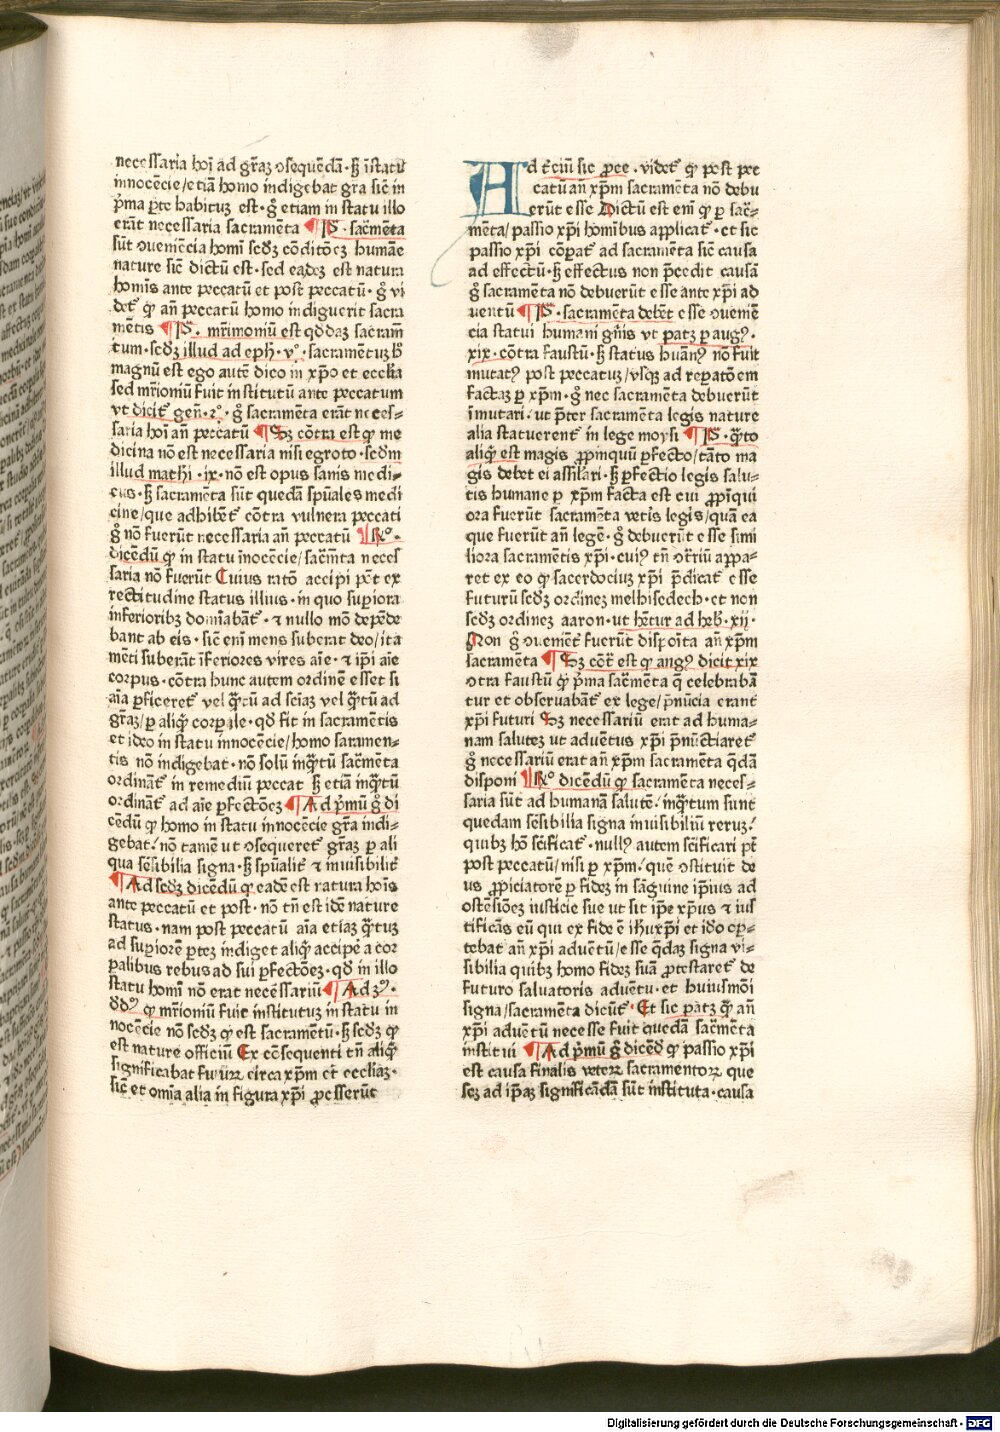 necessaria hoī ad gr̄aꝫ ↄsequēdā · ꝫ īstatu
innocēcie/etiā homo indigebat gra sic̄ in
p̄ma ꝑte habituꝫ est · g̊ etiam in statu illo
erāt necessaria sacramēta ¶ P̄ · sac̄mēta
sūt ↄueniēcia homī sc̄dꝫ cōditōeꝫ humāe
nature sic̄ dictū est · sed eadeꝫ est natura
homīs ante peccatū et post peccatū · g̊ vi
det̄ ꝙ an̄ peccatū homo indiguerit sacra
mētis ¶ P̄ · mr̄imoniū est qd̄daꝫ sacram̄
tum · sc̄dꝫ illud ad eph · v° · sacramētuꝫ h̄
magnū est ego autē dico in xp̄o et ecclīa
sed mr̄ioniū fuit institutū ante peccatum
vt dicit̄ gen̄ · 2° · g̊ sacramēta erāt neces⸗
saria hoī an̄ peccatū ¶ Sꝫ cōtra est ꝙ me
dicina nō est necessaria nisi egroto · sc̄dm
illud mathi · ix · nō est opus sanis medi⸗
cus · ꝫ sacramēta sūt quedā sp̄uales medi
cine/que adhibēt̄ cōtra vulnera peccati
g̊ nō fuerūt necessaria an̄ peccatū ¶ R̄° ·
dicēdū ꝙ in statu īnocēcie/sac̄mt̄a neces
saria nō fuerūt Cuius ratō accipi pōt ex
rectitudine status illius · in quo suꝑiora
inferioribꝫ domīabāt̄ · ⁊ nullo mō depēde
bant ab eis · sic̄ enī mens suberat deo/ita
mēti suberāt īferiores vires aīe · ⁊ ip̄i aīe
corpus · cōtra hunc autem ordinē esset si
aīa ꝑficeret̄ vel q̄ꝫtū ad sciāꝫ vel q̄ꝫtū ad
gr̄aꝫ/ꝑ aliqd̄ corꝑale · qd̄ fit in sacramētis
et ideo in statu innocēcie/homo saramen⸗
tis nō indigebat · nō solū inq̄ꝫtū sac̄mēta
ordināt̄ in remediū peccat ꝫ etiā inq̄ꝫtū
ordināt̄ ad aīe ꝑfectōeꝫ ¶ Ad p̄mū g̊ di
cēdū ꝙ homo in statu innocēcie gr̄a indi⸗
gebat/nō tamē ut ↄsequeret̄ gr̄aꝫ ꝑ ali
qua sēsibilia signa · ꝫ sp̄ualit̄ ⁊ inuisibilit̄
¶ Ad sc̄dꝫ dicēdū ꝙ eadē est ratura hoīs
ante peccatū et post · nō tn̄ est idē nature
status · nam post peccatū aīa etiaꝫ q̄ꝫtuꝫ
ad suꝑiorē ꝑteꝫ indiget aliqd̄ accipe̛ a cor
ꝑalibus rebus ad sui ꝑfectōeꝫ · qd̄ in illo
statu homī nō erat necēssariū ¶ Ad 3ꝰ ·
dd̄ꝰ ꝙ mr̄ioniū fuit institutuꝫ in statu in
nocēcie nō sc̄dꝫ ꝙ est sacramētū · ꝫ sc̄dꝫ ꝙ
est nature officiū Ex cōsequenti tn̄ aliqd̄
significabat fu uꝝ circa xp̄m et eccliaꝫ ·
sic̄ et omīa alia in figura xp̄i p̄cesserūt
Ad t̄ciū sic ꝓce · videt̄ ꝙ post pec
catū an̄ xp̄m sacramēta nō debu
erūt esse Dictū est enī ꝙ ꝑ sac̄⸗
mēta/passio xp̄i homībus applicat̄ · et sic
passio xp̄i cōꝑat̄ ad sacramēta sic̄ causa
ad effectū · ꝫ effectus non p̄cedit causā
g̊ sacramēta nō debuerūt esse ante xp̄i ad
uentū ¶ P̄ · sacramēta debēt esse ↄueniē
cia statui humani gn̄is vt patꝫ ꝑ augꝰ ·
xix · cōtra faustū · ꝫ status huānꝰ nō fuit
mutatꝰ post peccatuꝫ/vsqꝫ ad reꝑatōem
factaꝫ ꝑ xp̄m · g̊ nec sacramēta debuerūt
īmutari/ut p̄ter sacramēta legis nature
alia statuerent̄ in lege moysi ¶ P̄ · q̄ꝫto
aliqd̄ est magis ꝓpinquū ꝑfecto/tāto ma
gis debet ei assilari · ꝫ ꝑfectio legis salu⸗
tis humane ꝑ xp̄m facta est cui ꝓp̄iqui
ora fuerūt sacramēta vet̄is legis/quā ea
que fuerūt an̄ legē · g̊ debuerūt esse simi
liora sacramētis xp̄i · cuiꝰ tn̄ ↄr̄riū appa⸗
ret ex eo ꝙ sacerdociuꝫ xp̄i p̄dicat̄ esse
futurū sc̄dꝫ ordineꝫ melhisedech · et non
sc̄dꝫ ordineꝫ aaron · ut hētur ad heb̄ · xij ·
Non g̊ ↄueniēt̄ fuerūt dispoīta an̄ xp̄m
sacramēta ¶ Sꝫ cōt̄ est ꝙ augꝰ dicit xix
ↄtra faustū ꝙ p̄ma sac̄mēta q̄ celebrabā
tur et obseruabāt̄ ex lege/p̄nūcia erant
xp̄i futuri Sꝫ necessariū erat ad huma⸗
nam saluteꝫ ut aduētus xp̄i p̄nūctiaret̄
g̊ necessariū erat an̄ xp̄m sacramēta q̄dā
disponi ¶ R̄° dicēdū ꝙ sacramēta neces⸗
saria sūt ad humanā salutē/inq̄ꝫtum sunt
quedam sēsibilia signa inuisibiliū reruꝫ/
quibꝫ hō sc̄ificat̄ · nullꝰ autem sc̄ificari pt̄
post peccatū/nisi ꝑ xp̄m/quē ↄstituit de
us ꝓpiciatorē ꝑ fideꝫ in sāguine ip̄ius ad
ostēsiōeꝫ iusticie sue ut sit ip̄e xp̄us ⁊ ius
tificās eū qui ex fide ē ihuxp̄i et ido op⸗
tebat an̄ xp̄i aduētū/esse q̄daꝫ signa vi⸗
sibilia quibꝫ homo fideꝫ suā ꝓtestaret̄ de
futuro saluatoris aduētu · et huiusmōi
signa/sacramēta dicūt̄ · Et sic patꝫ ꝙ an̄
xp̄i aduētū necesse fuit quedā sac̄mēta
institui ¶ Ad p̄mū g̊ dicēd̄ ꝙ passio xp̄i
est causa finalis veteꝝ sacramentoꝝ que
scꝫ ad ip̄aꝫ significādā sūt instituta · causa
Digitalisierung gefördert durch die Deutsche Forschungsgemeinschaft - DFG